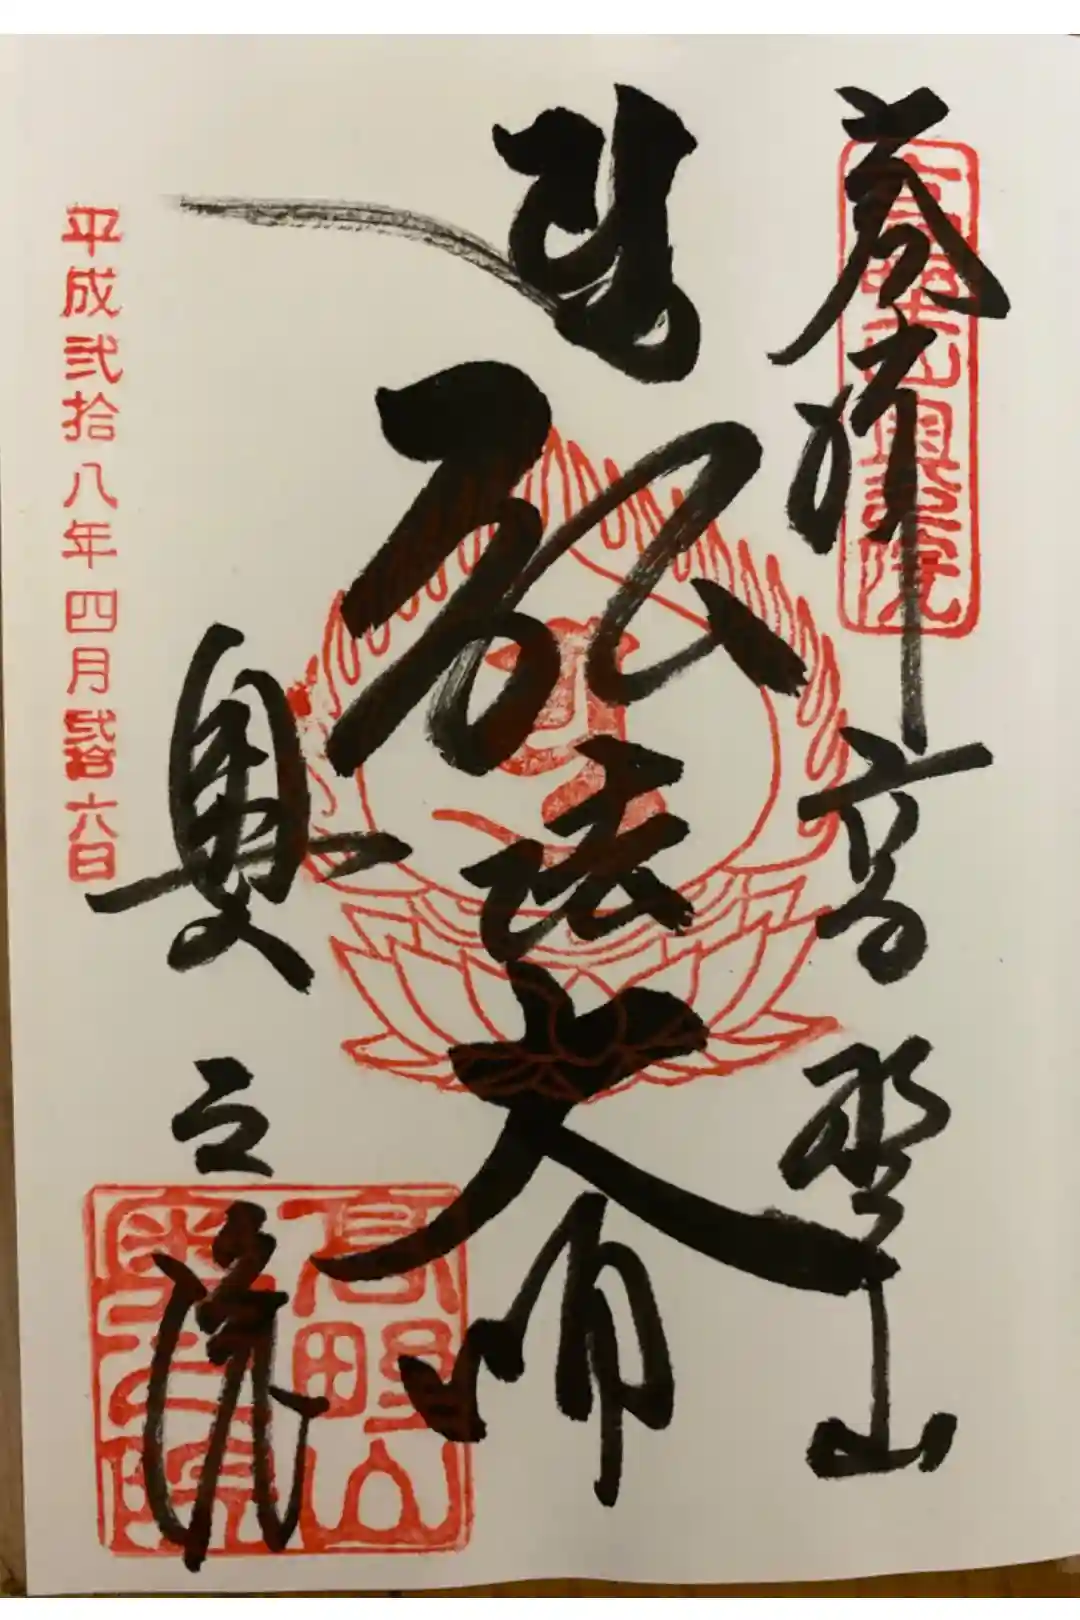 奉拝
高野山
高野山奥之院
弘法大師
奥之院
平成弐拾八年四月弐拾六日
高野山
奥之院